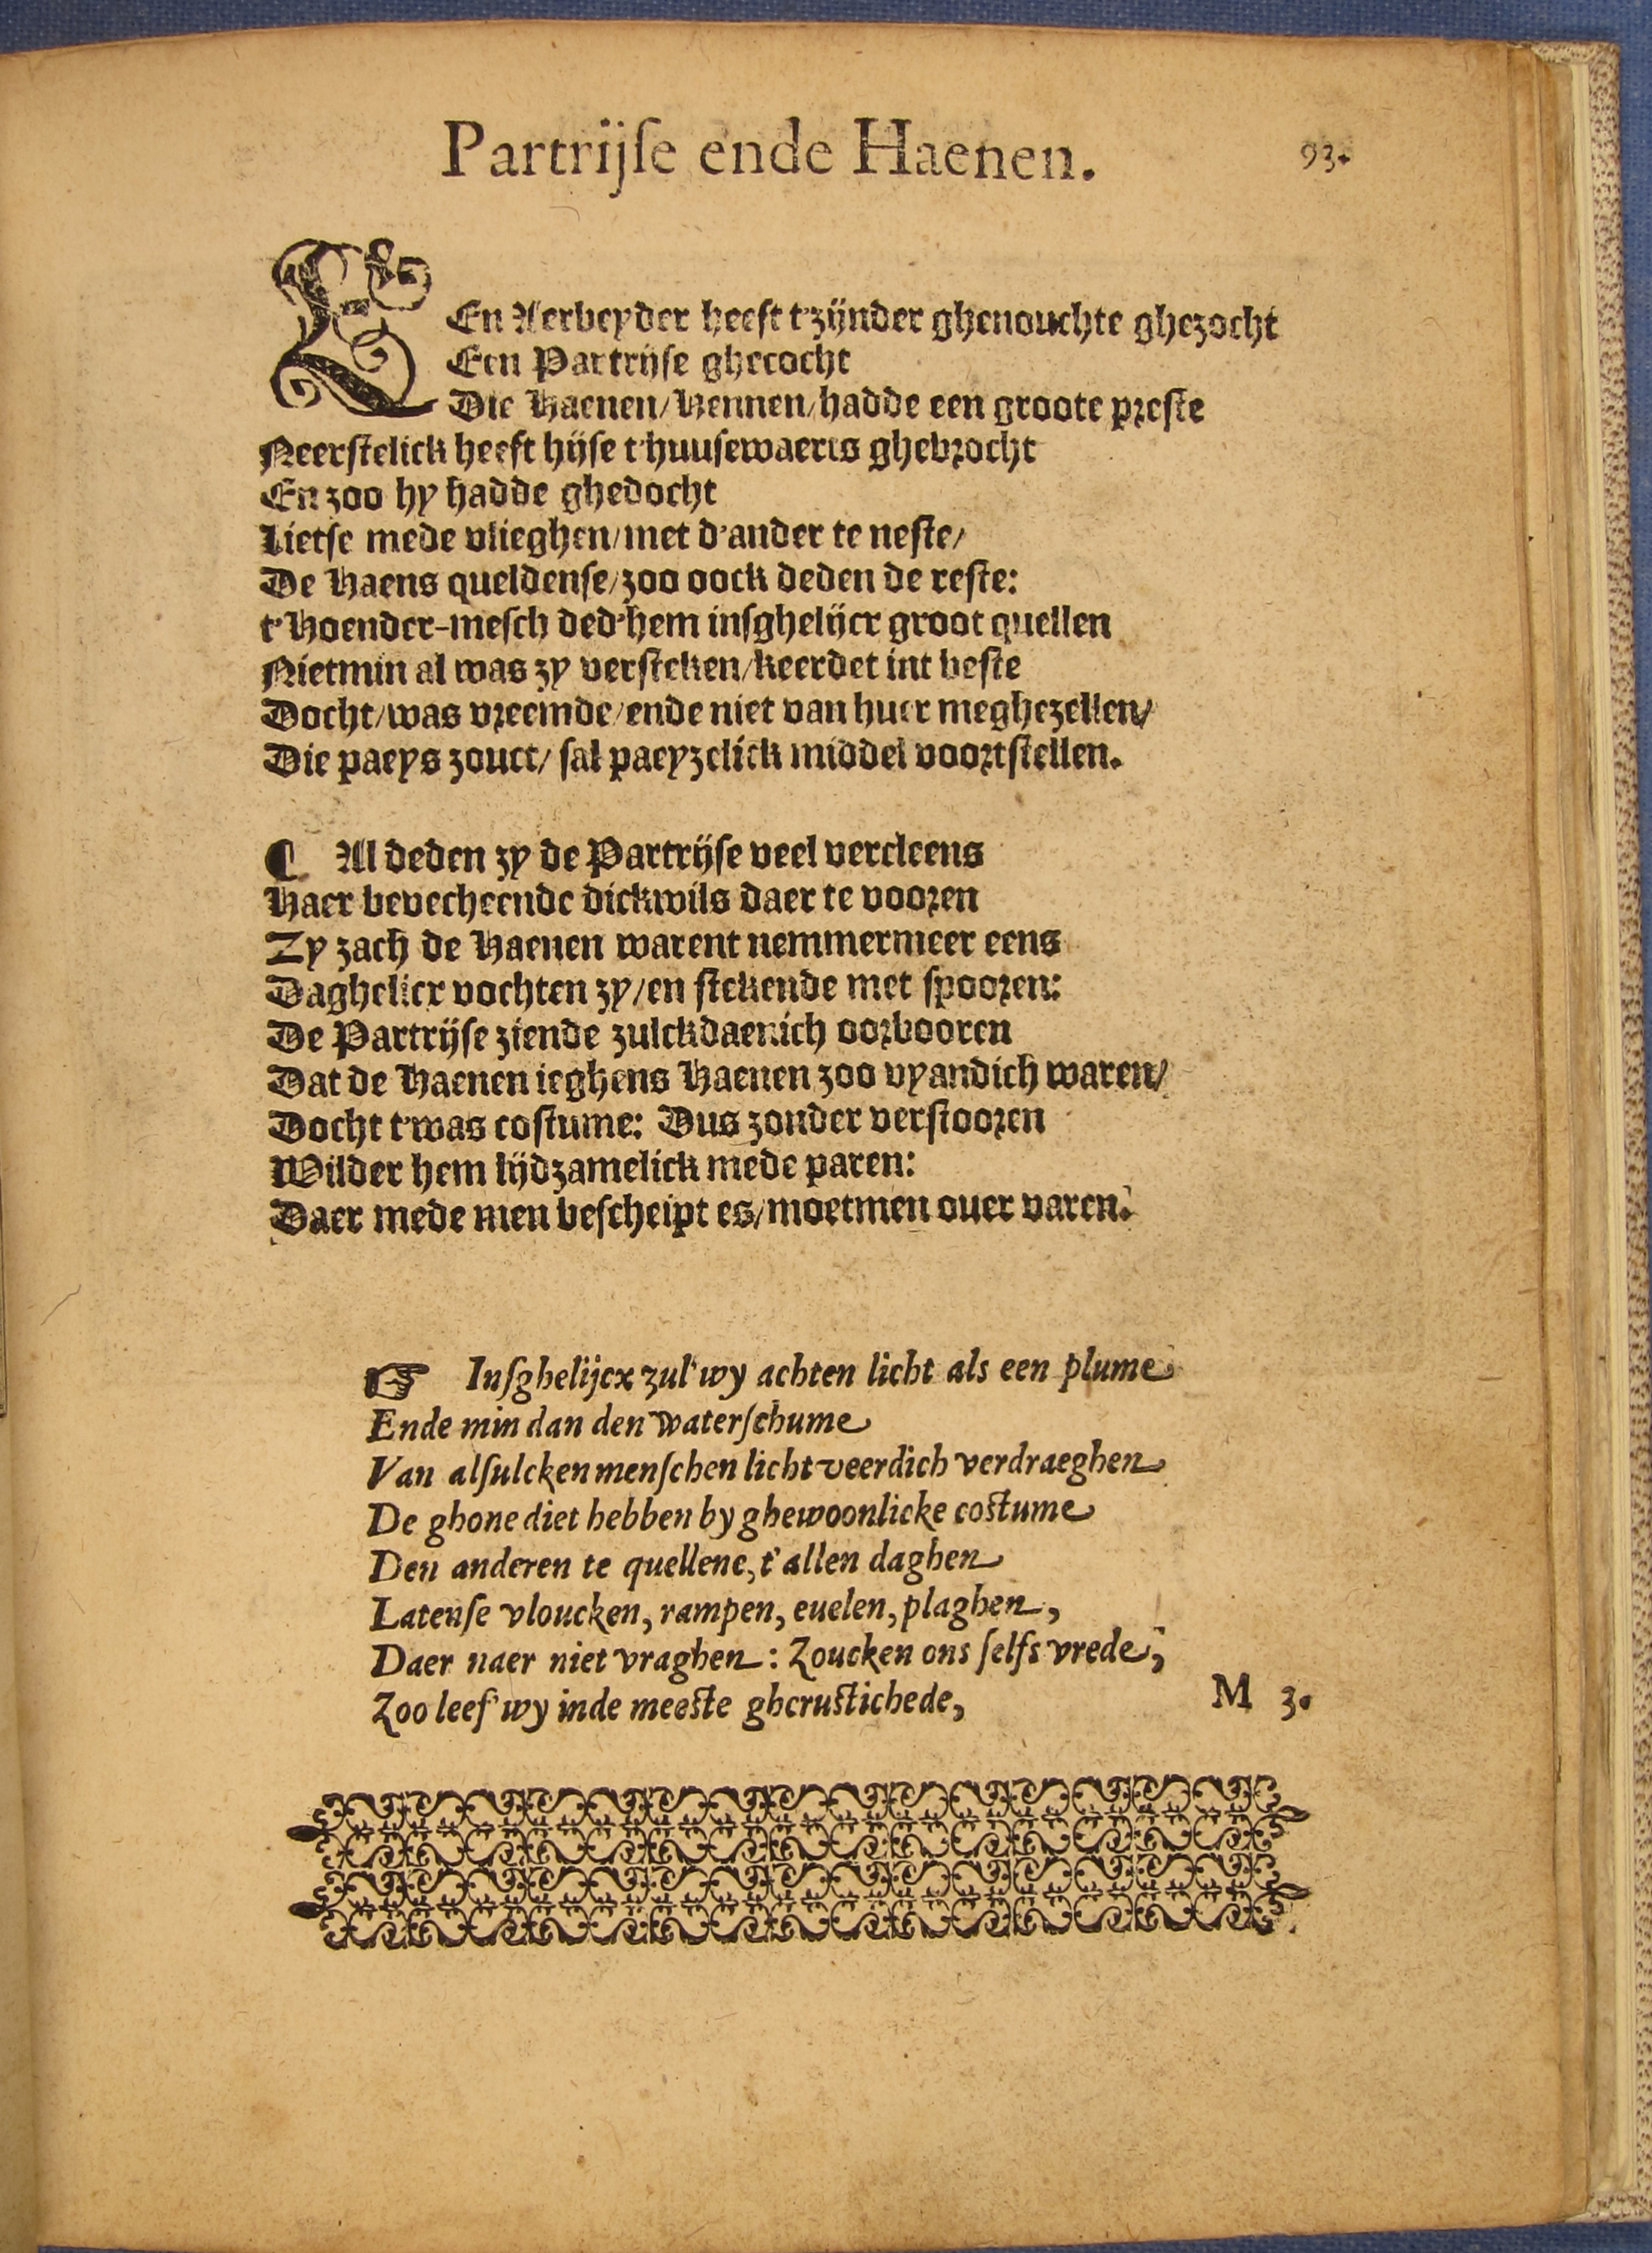 Partrijſe ende Haenen. 93.
EEn Aerbeyder heeft t'zijnder ghenouchte ghezocht
Een Partrijſe ghecocht
Die Haenen/Hennen/hadde een groote preſte
Neerſtelick heeft hijſe t'huuſewaerts ghebrocht
En zoo hy hadde ghedocht
Lietſe mede vlieghen/met d'ander te neſte/
De Haens queldenſe/zoo oock deden de reſte:
t'Hoender-meſch ded'hem inſghelijcx groot quellen
Nietmin al was zy verſteken/keerdet int beſte
Docht/was vreemde/ende niet van huer meghezellen/
Die paeys zouct/ ſal paeyzelick middel voortſtellen.
¶ Al deden zy de Partrijſe veel vercleens
Haer bevechtende dickwils daer te vooren
Zy zach de Haenen warent nemmermeer eens
Daghelicx vochten zy/en ſtekende met ſpooren:
De Partrijſe ziende zulckdaenich oorbooren
Dat de Haenen ieghens Haenen zoo vyandich waren/
Docht t'was coſtume: Dus zonder verſtooren
Wilder hem lijdzamelick mede paren:
Daer mede men beſcheipt es/moetmen ouer varen.
☞ Inſghelijcx zul'wy achten licht als een plume
Ende min dan den waterſchume
Van alſulcken menſchen licht veerdich verdraeghen
De ghone diet hebben by ghewoonlicke coſtume
Den anderen te quellene, t'allen daghen
Latenſe vloucken, rampen, euelen, plaghen,
Daer naer niet vraghen: Zoucken ons ſelfs vrede,
Zoo leef'wy inde meeſte gheruſtichede,
M 3.